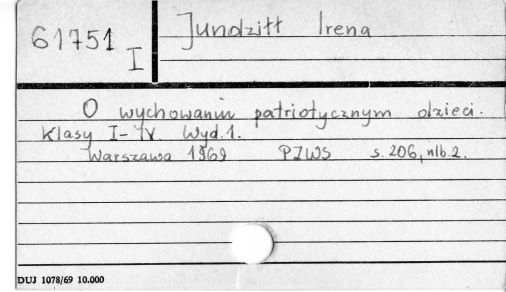 61751 I
Jundziłł Irena
O wychowaniu patriotycznym dzieci.
Klasy I-IV Wyd. 1.
Warszawa 1969 PZWS s. 206, nlb. 2.
DUJ 1078/69 10.000